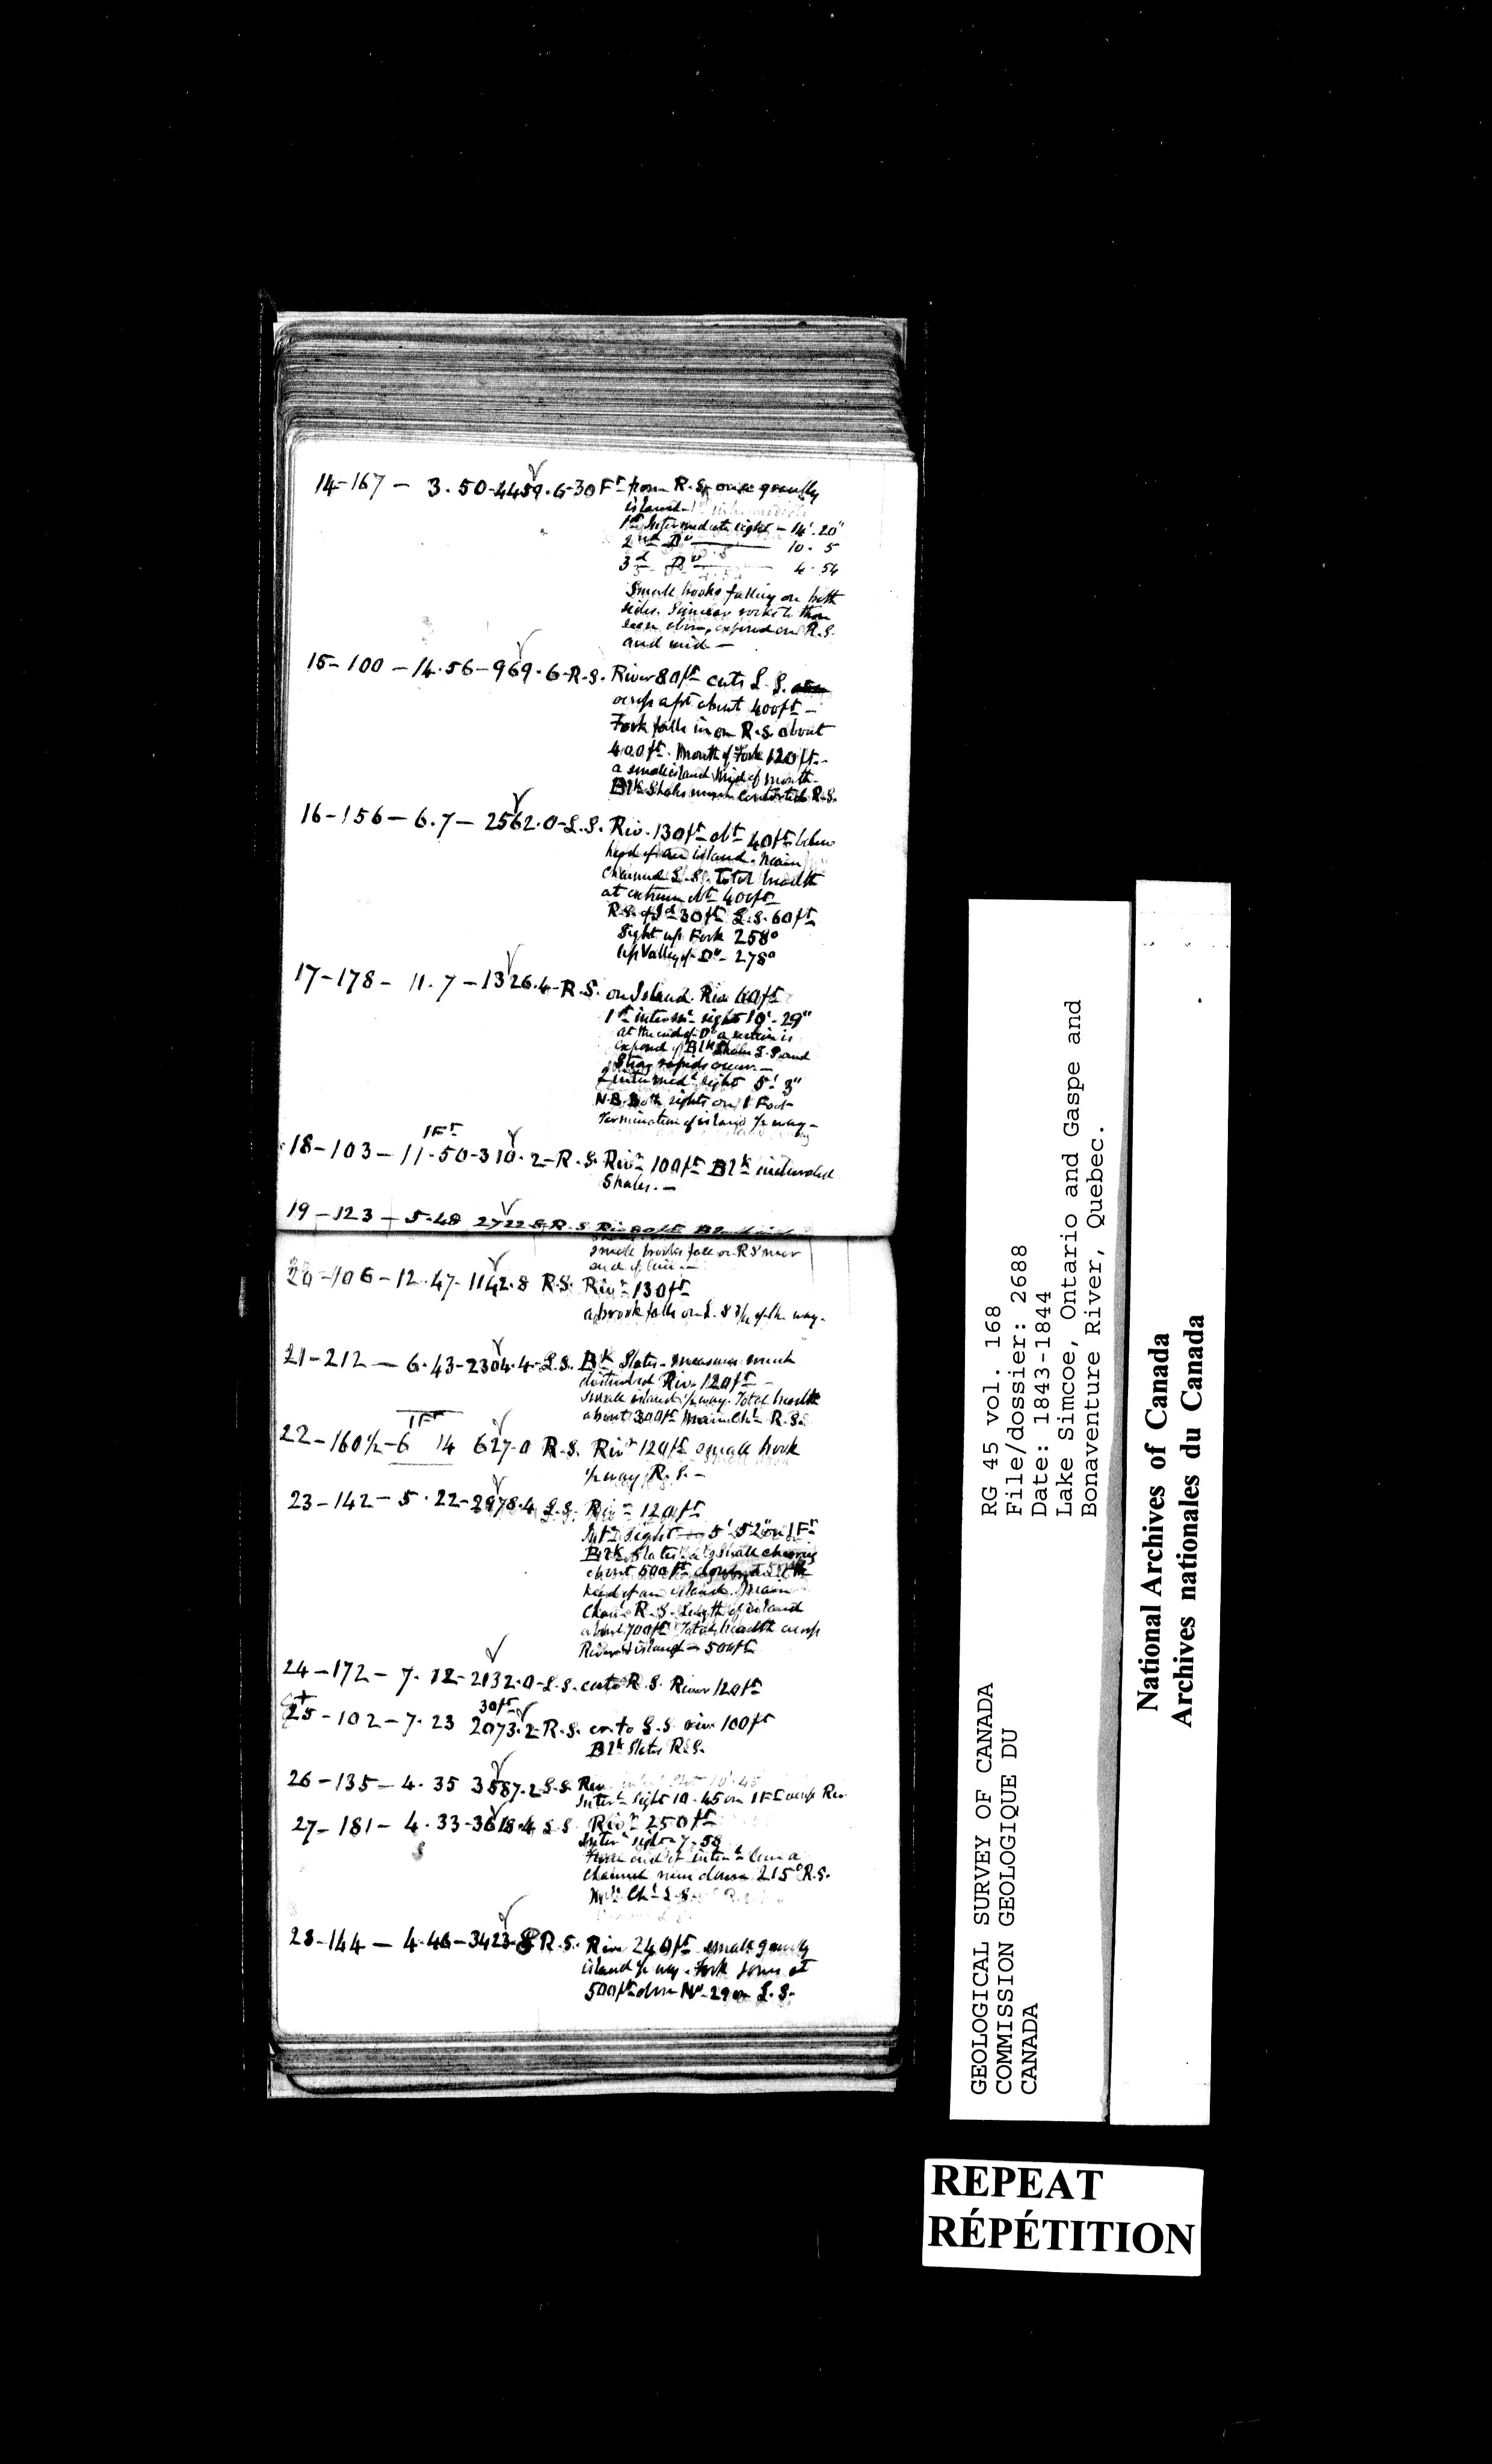 14-167 - 3.50-4459.6-30Ft from R.S. on a gravelly
island
1st Intermediate sight - 14'.20"
2nd Do - 10.5
3d Do - 4.54
Small brooks falling on both
sides. Similar rocks to those
seen above, exposed on R.S.
and mid -
15-100 - 14.56-969.6-R.S. River 80ft cuts L.S.
across a pt about 400ft -
Fork falls in on R.S. about
400ft. Mouth of Fork 120ft -
a small island mid of mouth -
Blk Shales much contorted R.S.
16-156 - 6.7 - 2562.0-L.S. Riv. 130ft abt 40ft below
head of an island. Main
Channel L.S. Total breadth
at extreme abt 400ft
R.S. of Id 30ft L.S. 60ft
Sight up Fork 258°
up Valley of Do - 278°
17-178 - 11.7 - 1326.4-R.S. on Island. Riv 60ft
1st intermt sight 10'-29"
at the end of Do a section is
exposed of Blk Shales L.S. and
Strong rapids occur -
2 intermedt sight 5' 3"
N.B. Both sights on 1 Foot
Termination of island ½ way -
1Ft
18-103 - 11.50-310.2-R.S. Rivr 100ft Blk indurated
Shales. -
19-123 - 5.48 2722.8-R.S.
small brooks fall on R.S near
end of line. -
20-106-12.47-1142.8 R.S. Rivr 130ft
a brook falls on L.S ¾ of the way.
21-212 - 6.43-2304.4-L.S. Bk Slates - measures much
disturbed Riv. 120ft -
Small island ½ way. Total breadth
about 300ft Main Chl R.S.
1Ft
22-160½-6 14 627.0 R.S. Rivr 120ft small brook
½ way R.S. -
23-142 - 5.22-2978.4 L.S. Rivr 120ft
Intr Sight 5' 52" on 1Ft
Blk Slates
about 500ft
head of an island. Main
Chan R.S. Length of island
about 700ft Total breadth across
River & island - 500ft
24-172 - 7.12-2132.0-L.S. cuts R.S. River 120ft
30ft
25-102-7.23 2073.2-R.S. on to L.S. riv 100ft
Blk Slates R.S.
26-135 - 4.35 3587.2 L.S. Riv
Intert Sight 10.45 on 1Ft across Riv
27-181 - 4.33-3618.4 L.S. Rivr 250ft
Intert sight 7.58
From end of intert line a
channel runs down 215° R.S.
Mn Chl L.S.
28-144 - 4.46-3423.8 R.S. Riv 240ft small gravelly
island ½ way. Fork joins at
500ft down No 29 on L.S.
GEOLOGICAL SURVEY OF CANADA
COMMISSION GEOLOGIQUE DU
CANADA
RG 45 vol. 168
File/dossier: 2688
Date: 1843-1844
Lake Simcoe, Ontario and Gaspe and
Bonaventure River, Quebec.
National Archives of Canada
Archives nationales du Canada
REPEAT
RÉPÉTITION